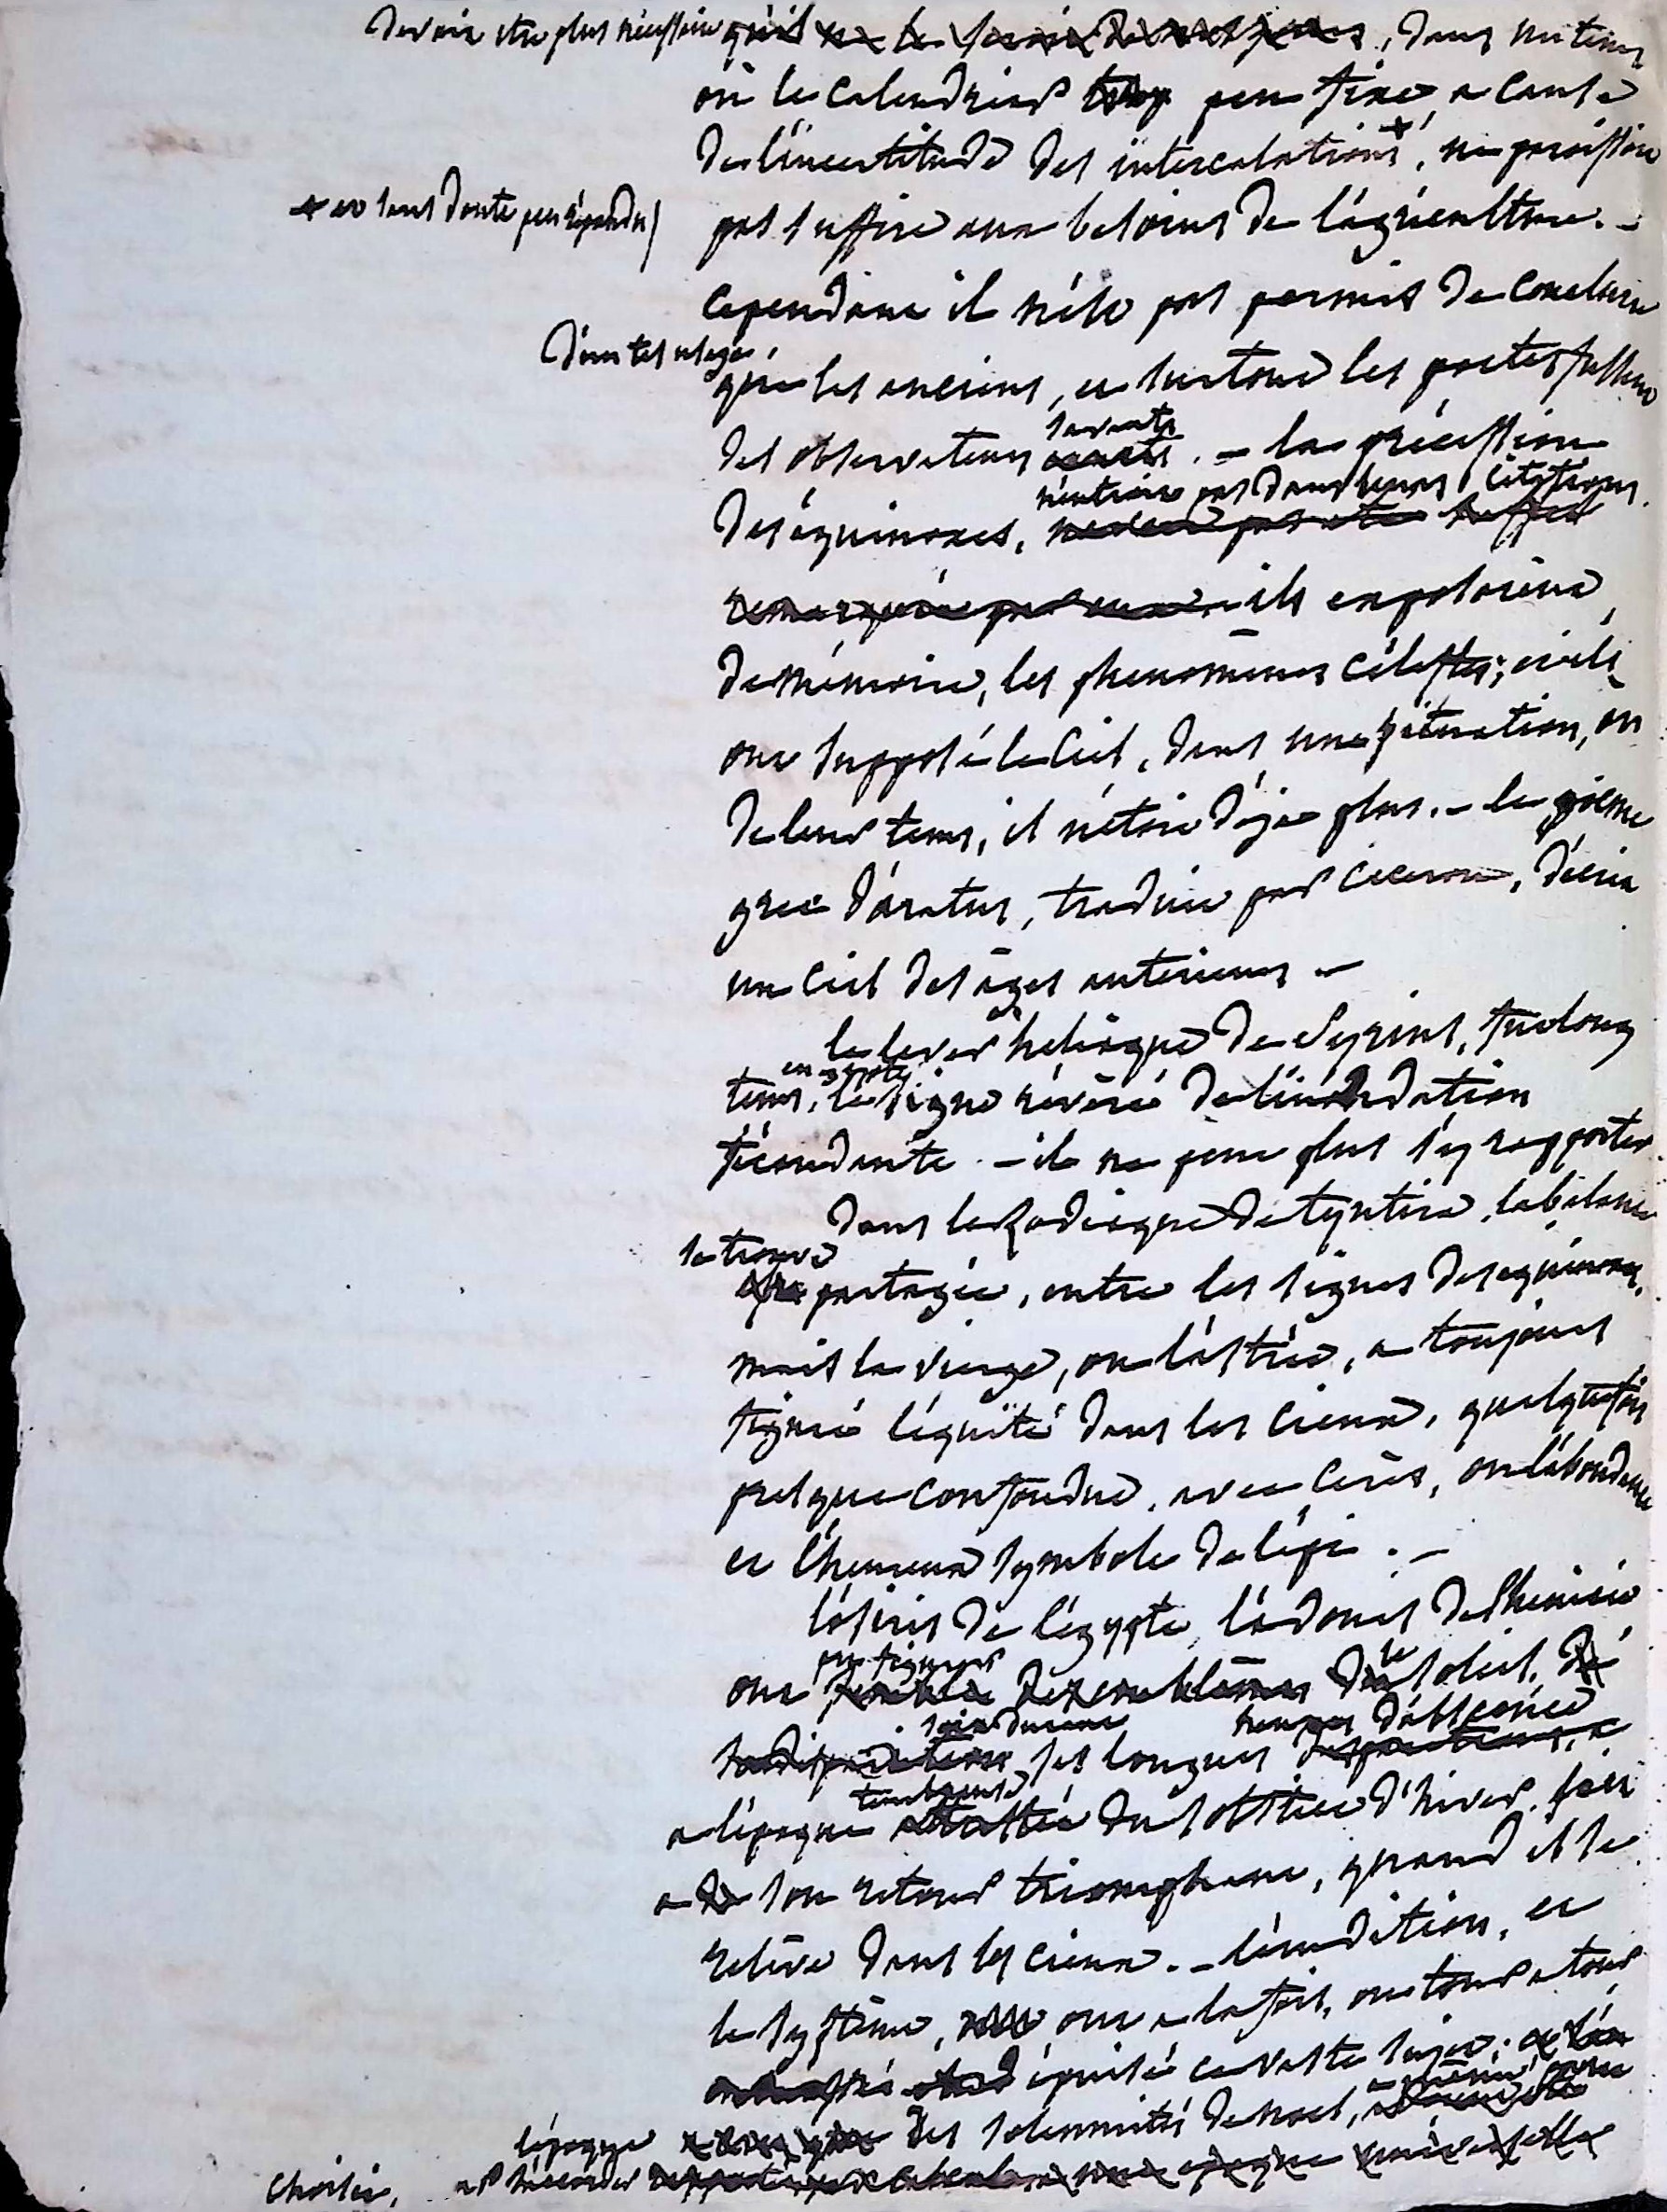 devoir être plus nécessaire qu'il, dans un tems
où le calendrier trop peu fixe a cause
de l'incertitude des intercalations, ne paroissoit
+ et sans doute peu répandu /
pas suffire aux besoins de l'agriculture. -
cependant il n'est pas permis de conclure
d'un tel usage,
que les anciens, et surtout les poetes fussent
des observateurs savants . - la précession
des équinoxes, n'entroit pas dans leurs citations.
ils exposoient
de mémoire, les phenomènes célestes; et ils
ont supposé le Ciel, dans une situation, ou
de leur tems, il n'étoit déja plus. - le poëme
grec d'aratus, traduit par Ciceron, décrit
un Ciel des âges anterieurs. -
le lever heliaque de Syrius, fut long
tems, en egypte, le signe révéré de l'inondation
fécondante. - il ne peut plus s'y rapporter
dans le Zodiaque de tyntira, la balance
se trouve
partagée, entre les signes des equinoxes.
mais la vierge, ou l'astrée, a toujours
figuré l'équité dans les cieux, quelquefois
presque confondue, avec Cerès, ou l'abondance
et l'heureux symbole de l'épi. -
l'osiris de l'égypte, l'adonis de Phenicie
ont pu figurer le soleil,
soit durant ses longues heures d'absence
a l'époque tenebreuse du solstice d'hiver, soit
a son retour triomphant, quand il se
relève dans les cieux. - l'érudition, et
le systême, ont a la fois, ou tour a tour
épuisé ce vaste sujet;
l'époque des solemnités de noel, a même
Choisie,